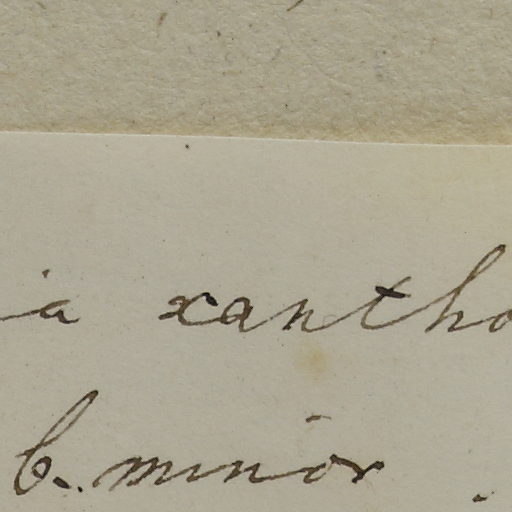 ia xantho
b. minor.